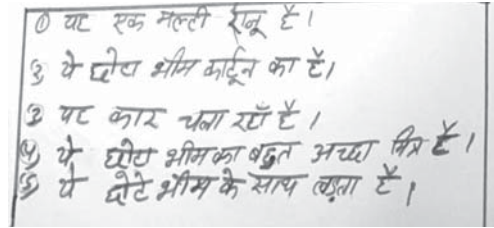 ① यह एक मल्टी रानू है।
२) ये छोटा भीम कार्टून का हैं।
३ यह कार चला रहाँ है।
४) ये छोटा भीम का बहुत अच्छा मित्र हैं।
५) ये छोटे भीम के साथ लड़ता हैं।